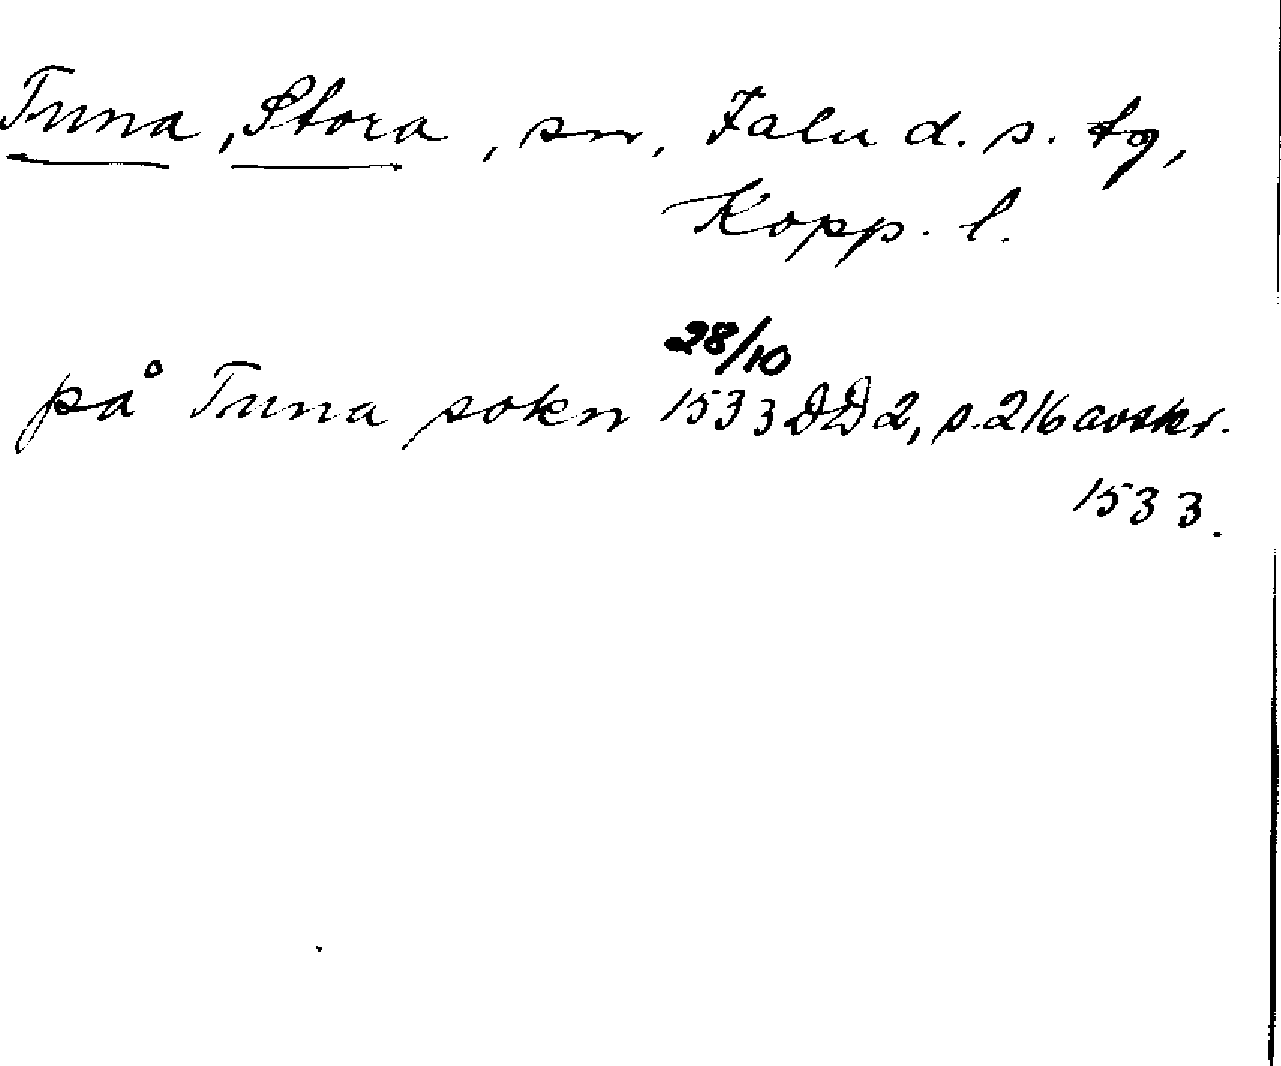 Tuna, Stora, sn, Falu d. s. tg,
Kopp. l.
28/10
på Tuna sokn 1533 DD2, s. 216 avskr.
1533.